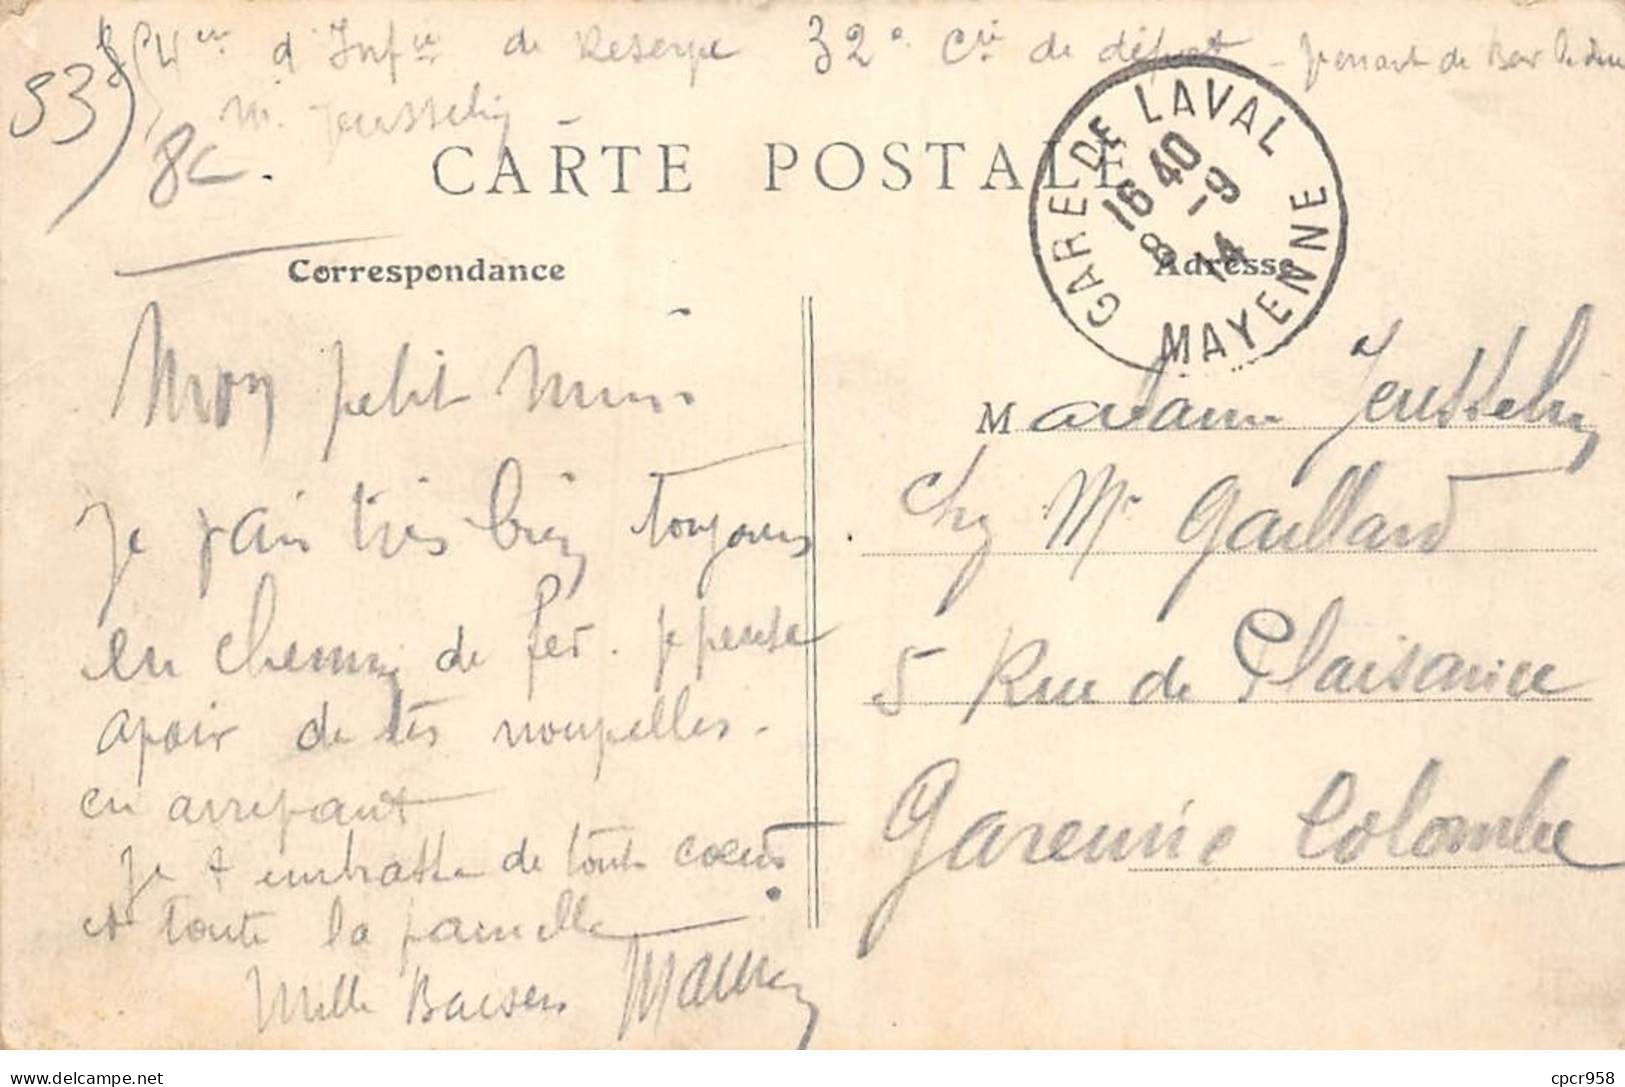 d'Infie de Reserve 32e Cie de dépot - venant de Bar le duc
M. Jousselin
53
8c.
CARTE POSTALE
GARE DE LAVAL
16 40
8 - 9
14
MAYENNE
Correspondance
Adresse
Mon petit Mimi
Je vais très bien toujours.
en chemin de fer. Je pense
avoir de tes nouvelles.
en arrivant
Je t embrasse de tout coeur
et toute la famille
Mille Baisers Maurice
Madame Jousselin
Chez Mr Gaillard
5 Rue de Plaisance
Garenne Colombe
cpcr958